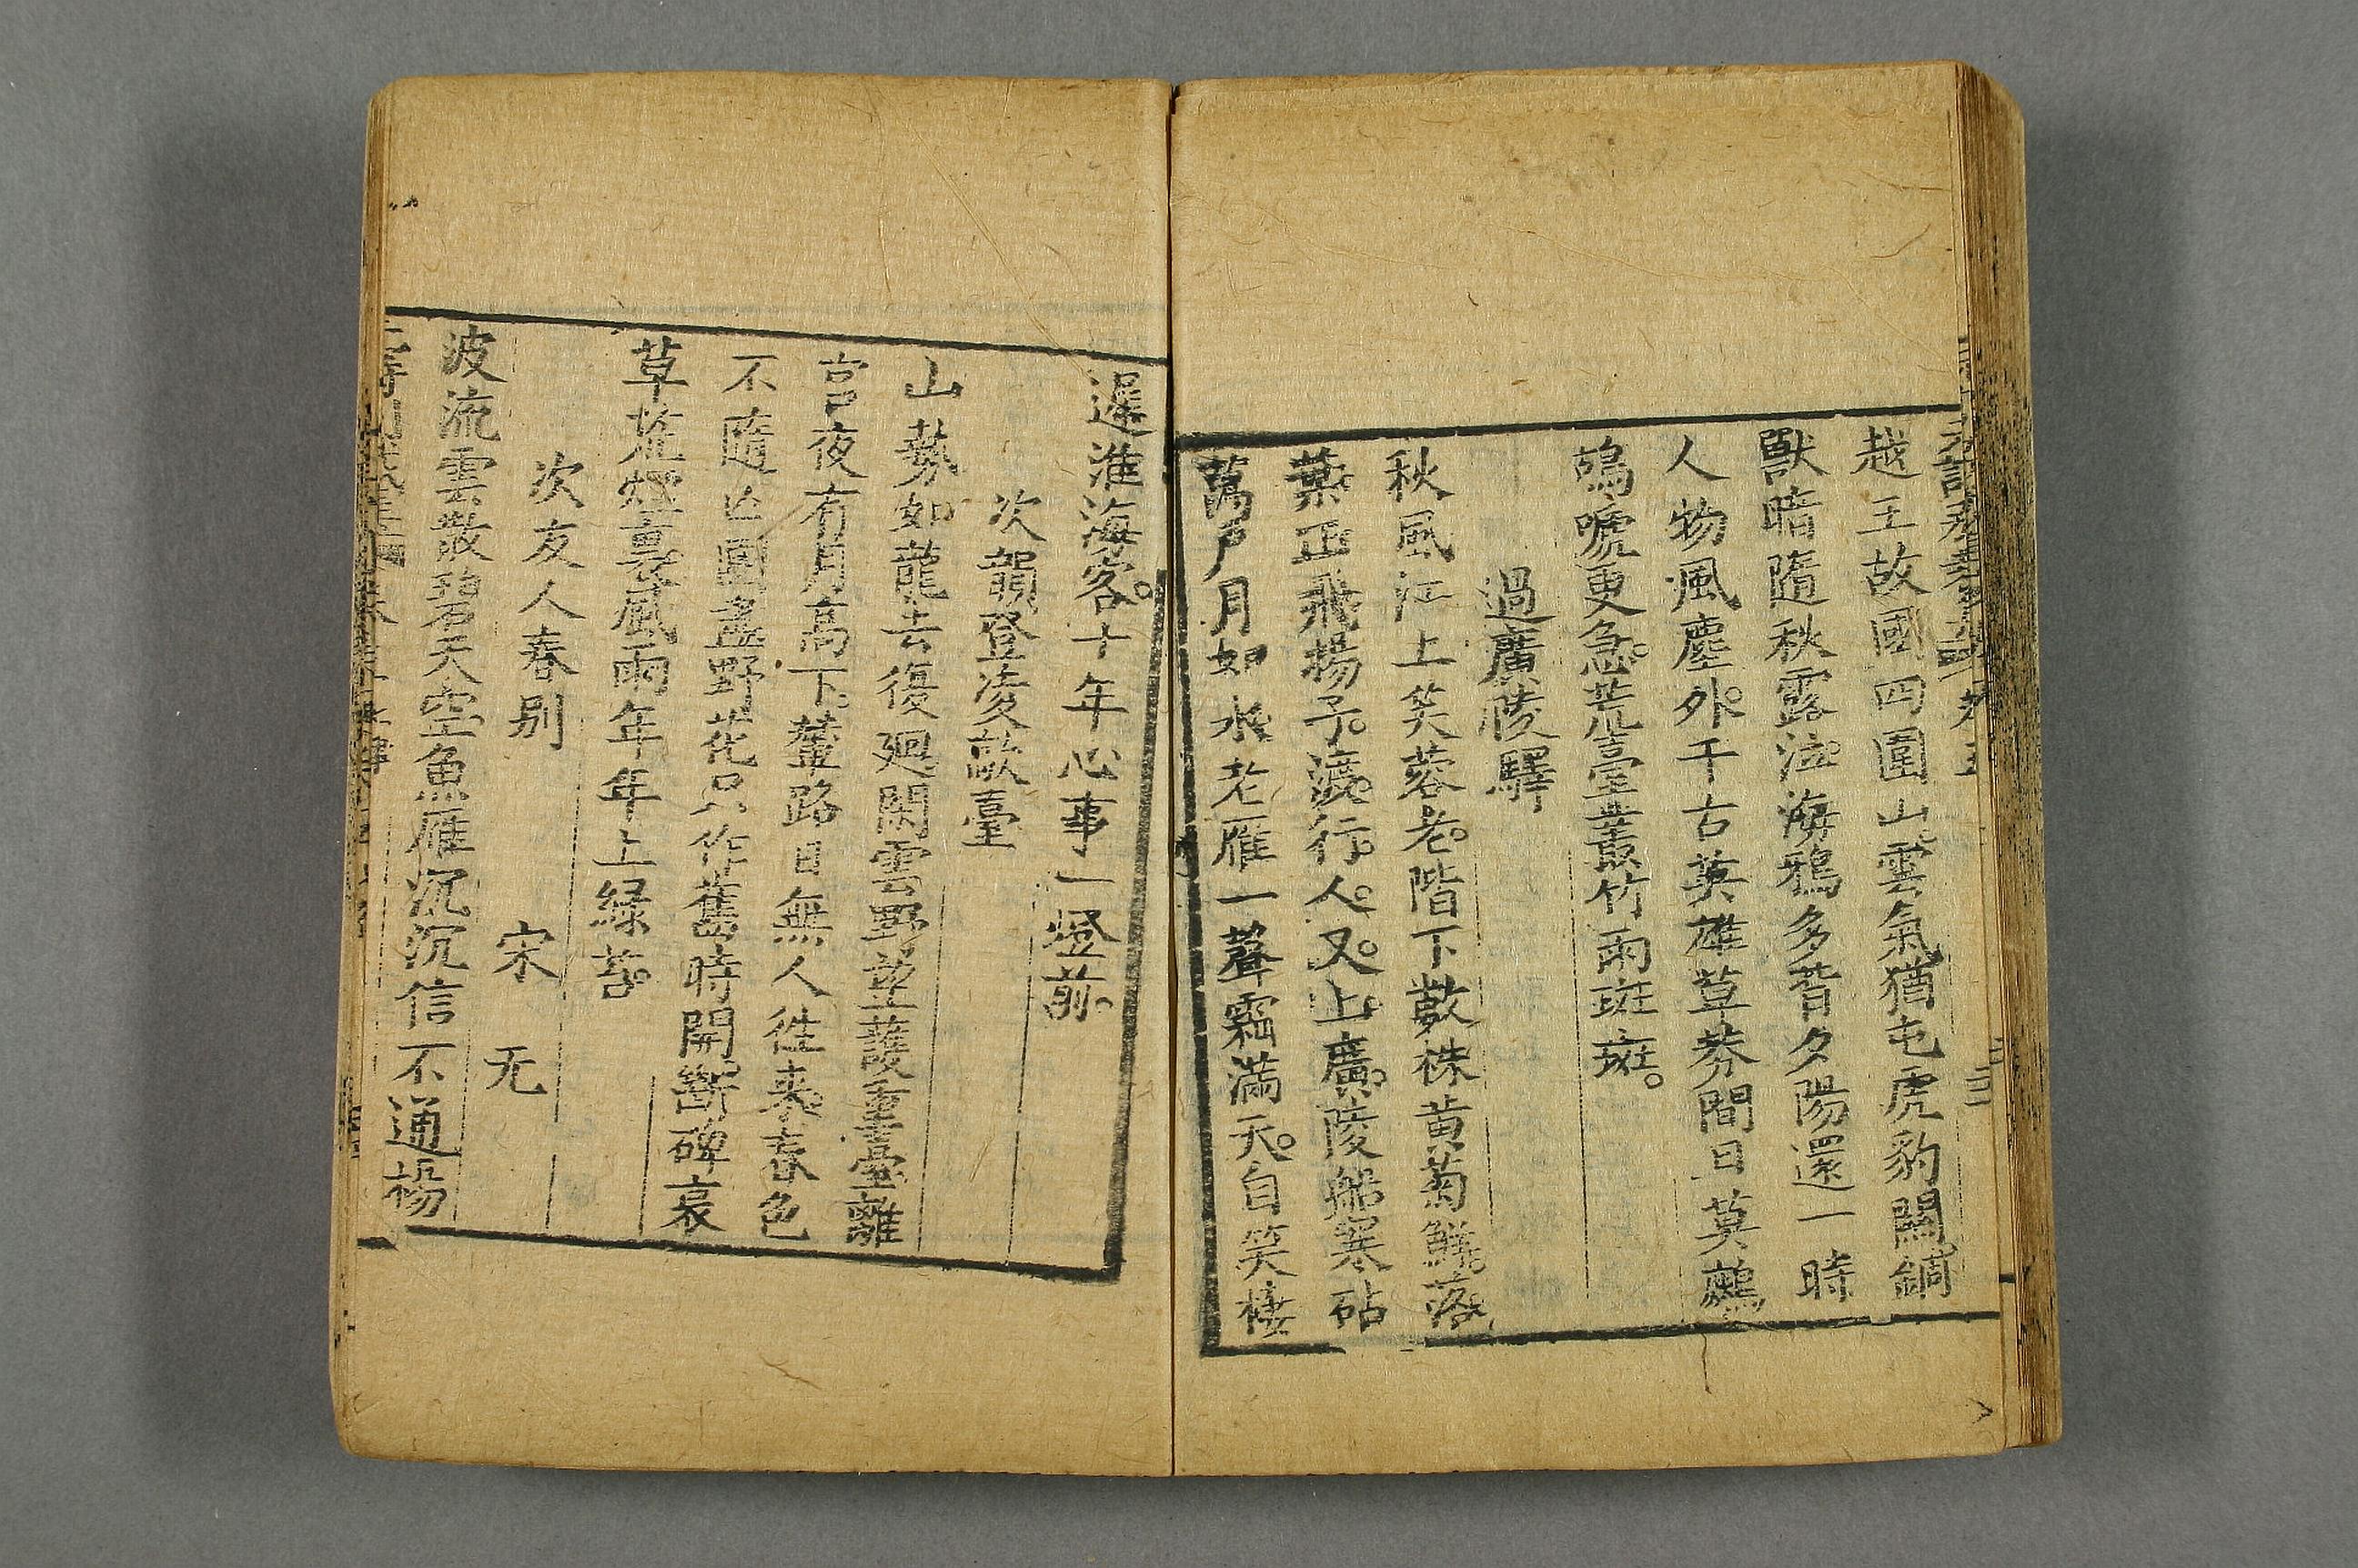 越王故國四圍山雲氣猶屯虎豹關銅
獸暗隨秋露泣海鴉多背夕陽還一時
人物風塵外千古英雄草莽間日莫鷓
鴣啼更急荒臺叢竹雨斑斑
過廣陵驛
秋風江上芙蓉老階下數株黄菊鮮落
葉正飛揚子渡行人又上廣陵船寒砧
萬戸月如水老雁一聲霜滿天自笑棲
遲淮海客十年心事一燈前
次韻登凌歊臺
山勢如龍去復廻閑雲野草護重臺離
宮夜有月高下輦路日無人往来春色
不隨亡國盡野花只作舊時開斷碑衰
草荒煙裏風雨年年上緑苔
次友人春别
宋 无
波流雲散碧天空魚雁沉沉信不通楊